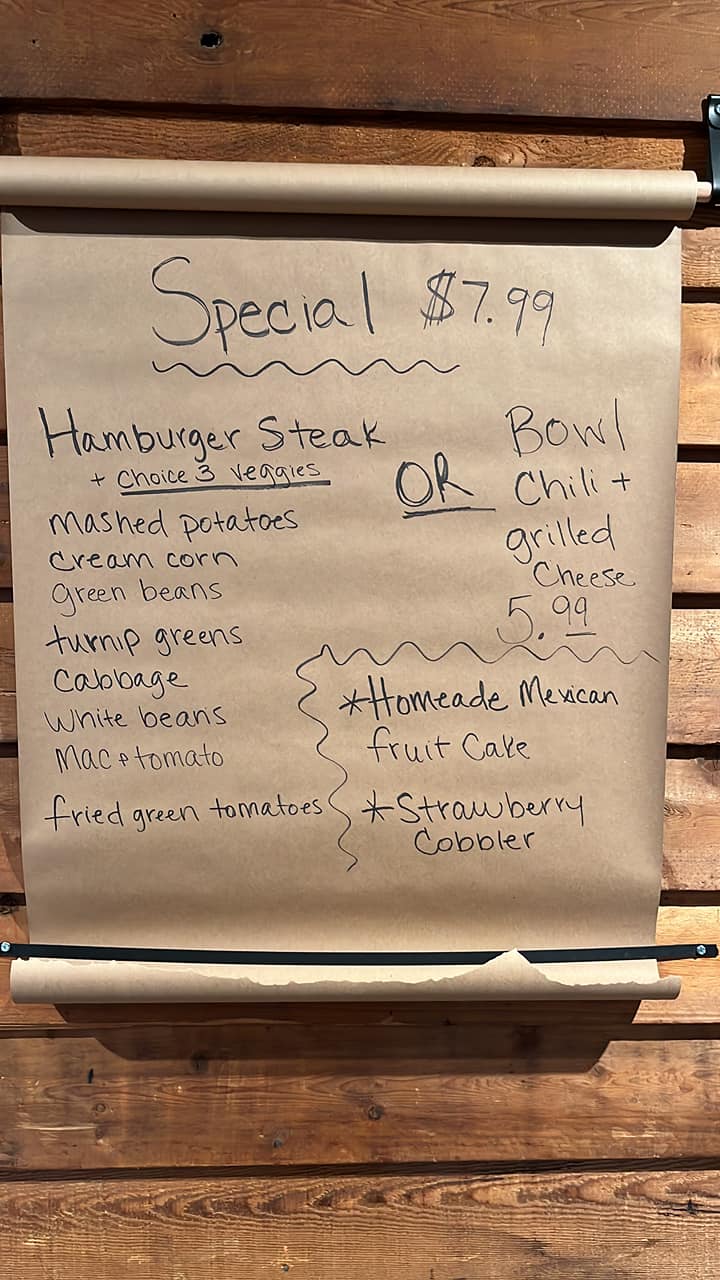 Special $7.99
Hamburger Steak
+ Choice 3 veggies
mashed potatoes
cream corn
green beans
turnip greens
Cabbage
White beans
Mac + tomato
fried green tomatoes
OR
Bowl
Chili +
grilled
Cheese
5.99
*Homeade Mexican
fruit Cake
*Strawberry
Cobbler